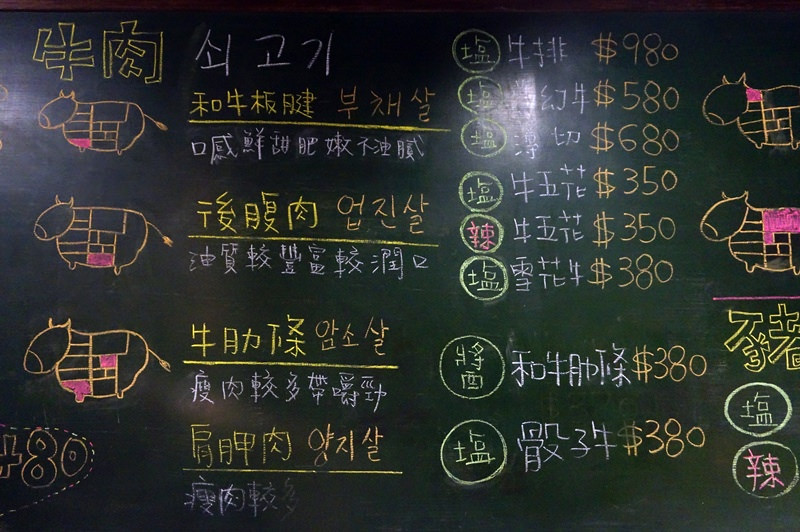 牛肉 쇠고기
和牛板腱 부채살
口感鮮甜肥嫩不油膩
後腹肉 업진살
油質較豐富較潤口
牛肋條 암소살
瘦肉較多帶嚼勁
肩胛肉 양지살
瘦肉較多
480
塩 牛排 $980
塩 幻牛 $580
塩 薄切 $680
塩 牛五花 $350
辣 牛五花 $350
塩 雪花牛 $380
醬 和牛肋條 $380
塩 骰子牛 $380
豬
塩
辣